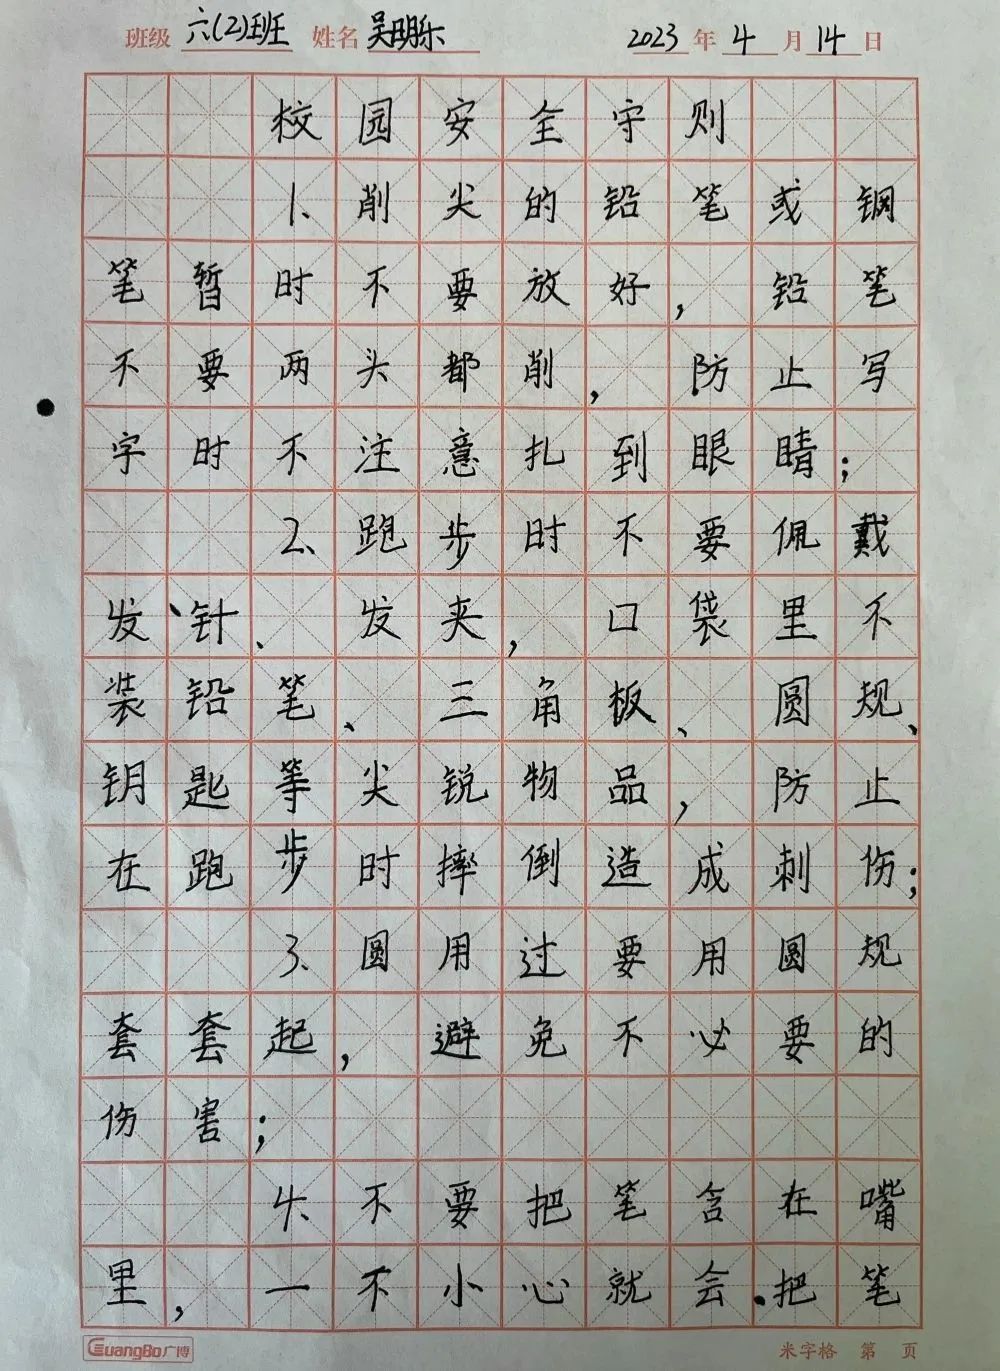 班级 六(2)班 姓名 吴玥乐 2023 年 4 月 14 日
校园安全守则
1、削尖的铅笔或钢
笔暂时不要放好，铅笔
不要两头都削，防止写
字时不注意扎到眼睛；
2、跑步时不要佩戴
发针、发夹，口袋里不
装铅笔、三角板、圆规、
钥匙等尖锐物品，防止
在跑步时摔倒造成刺伤；
3、圆用过要用圆规
套套起，避免不必要的
伤害；
4、不要把笔含在嘴
里，一不小心就会把笔
GuangBo广博 米字格 第 页